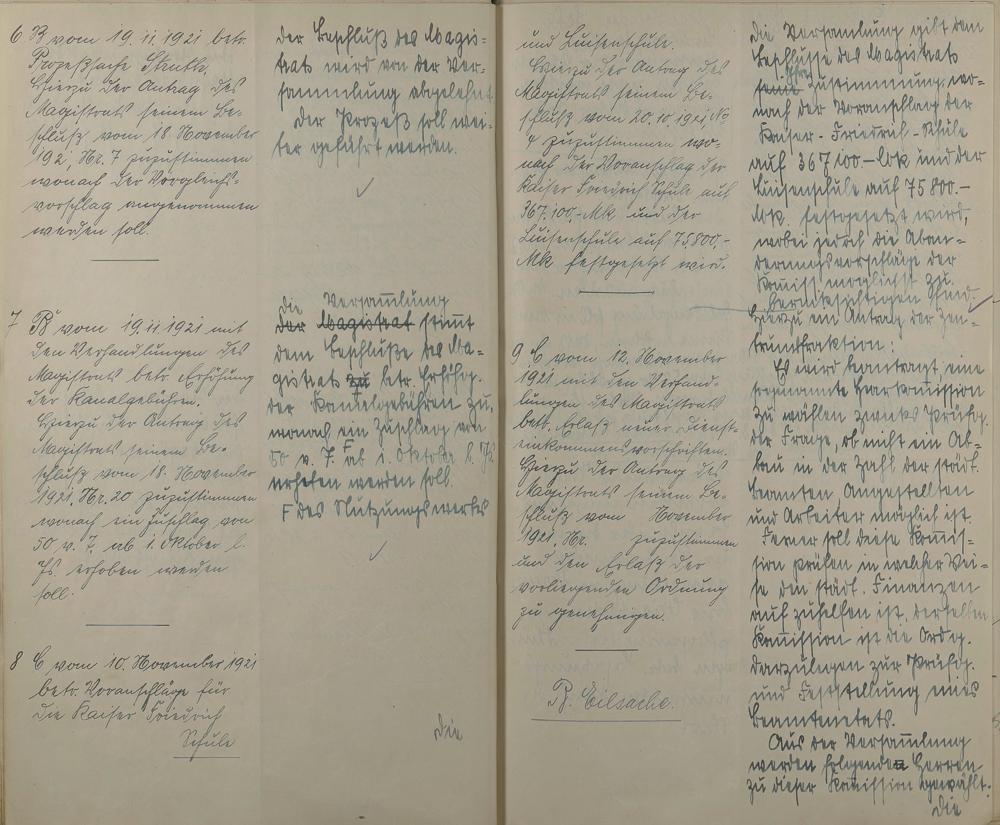 6 B vom 19.11.1921 betr.
Prozeßsache Struth.
Hierzu der Antrag des
Magistrats seinem Be-
schluß vom 18. November
192, Nr. 7 zuzustimmen
wonach der Vergleichs-
vorschlag angenommen
werden soll.
der Beschluß des Magis-
trats wird von der Ver-
sammlung abgelehnt.
Der Prozeß soll wei-
ter geführt werden.
7 B vom 19.11.1921 mit
den Verhandlungen des
Magistrats betr. Erhöhung
der Kanalgebühren.
Hierzu der Antrag des
Magistrats seinem Be-
schluß vom 18. November
1921. Nr. 20 zuzustimmen
wonach ein Zuschlag von
50 v. T. ab 1. Oktober l.
Js. erhoben werden
soll.
die Versammlung
der Magistrat stimmt
dem Beschluße des Ma-
gistrats zu betr. Erhöhg.
der Kanalgebühren zu,
wonach ein Zuschlag von
50 v. T. F ab 1. Oktober l. Js.
erhoben werden soll.
F des Nutzungswertes
8 C vom 10. November 1921
betr. Voranschläge für
die Kaiser Friedrich
Schule
die
und Luisenschule.
Hierzu der Antrag des
Magistrats seinem Be-
schluß vom 20.10.1921, No
4 zuzustimmen wo-
nach der Voranschlag der
Kaiser Friedrich Schule auf
367.100,- Mk und der
Luisenschule auf 75.800,-
Mk festgesetzt wird.
9 C vom 12. November
1921 mit den Verhand-
lungen des Magistrats
betr. Erlaß neuer Dienst-
einkommensvorschriften.
Hierzu der Antrag des
Magistrats seinem Be-
schluß vom November
1921, Nr. zuzustimmen
und den Erlaß der
vorliegenden Ordnung
zu genehmigen.
B. Eilsache.
die Versammlung gibt dem
Beschlusse des Magistrats
seine ihre Zustimmung, wo-
nach der Voranschlag der
Kaiser-Friedrich-Schule
auf 367 100 – Mk und der
Luisenschule auf 75 800.–
Mk. festgesetzt wird,
wobei jedoch die Aban-
derungsvorschläge der
Komiss. möglichst zu
berücksichtigen sind.
Hierzu ein Antrag der Zen-
trumsfraktion:
Es wird beantragt, eine
sogenannte Sparkomission
zu wählen zwecks Prüfg.
der Frage, ob nicht ein Ab-
bau in der Zahl der städt.
Beamten, Angestellten
und Arbeiter möglich ist.
Ferner soll diese Komis-
sion prüfen in welcher Wei-
se den städt. Finanzen
auf zuhelfen ist. derselben
Komission ist die Ordg.
darzulegen zur Prüfg.
und Feststellung eines
Beamtenetats.
Aus der Versamlung
werden folgenden Herren
zu dieser Komission gewählt:
die